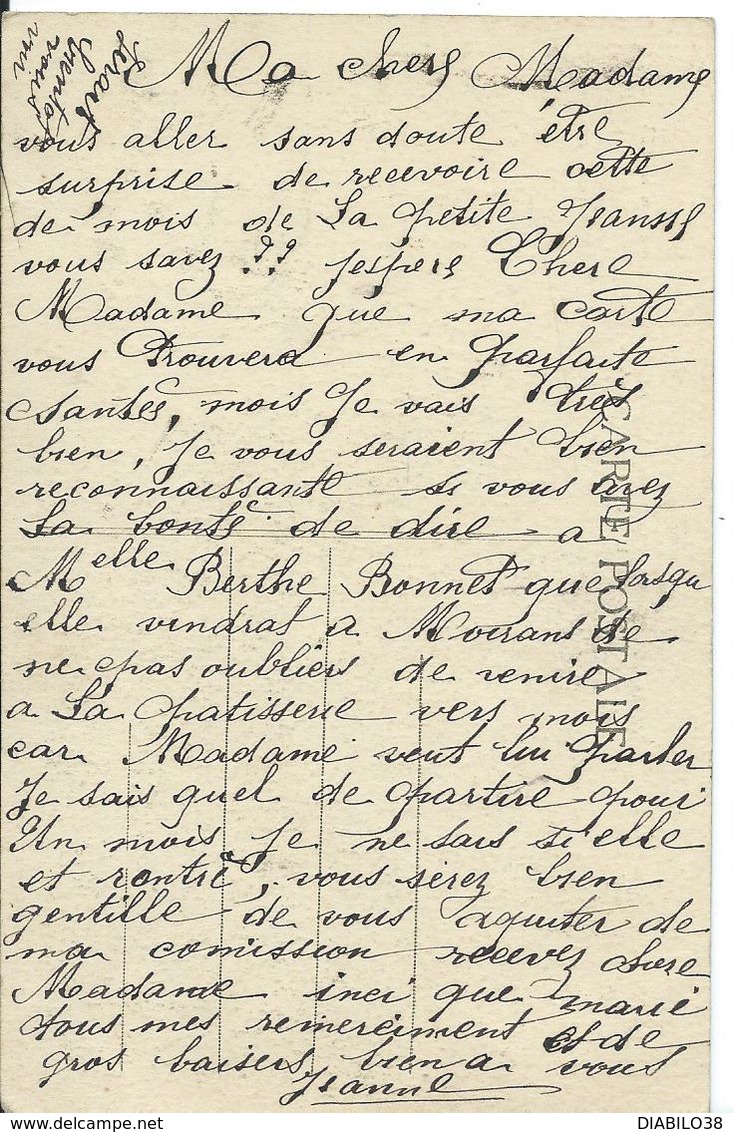 Ma chers Madame
vous aller sans doute être
surprise de recevoire cette
de mois de La petite Jeanne
vous savez ?? Jespere Chere
Madame que ma carte
vous trouvera en parfaite
Santée, mois Je vais très
bien, Je vous seraient bien
reconnaissante si vous avez
La bonté de dire a
Melle Berthe Bonnet que Lorsqu
elle vendrat a Moirans de
ne pas oubliers de venire
a La patisserie vers mois
car Madame veut lui parler
Je sais quel de partire pour
Un mois Je ne sais si elle
et rentré, vous serez bien
gentille de vous aquiter de
ma comission recevez chere
Madame inci que marie
tous mes remerciment et de
gros baisers bien a vous
Jeanne
CARTE POSTALE
DIABILO38